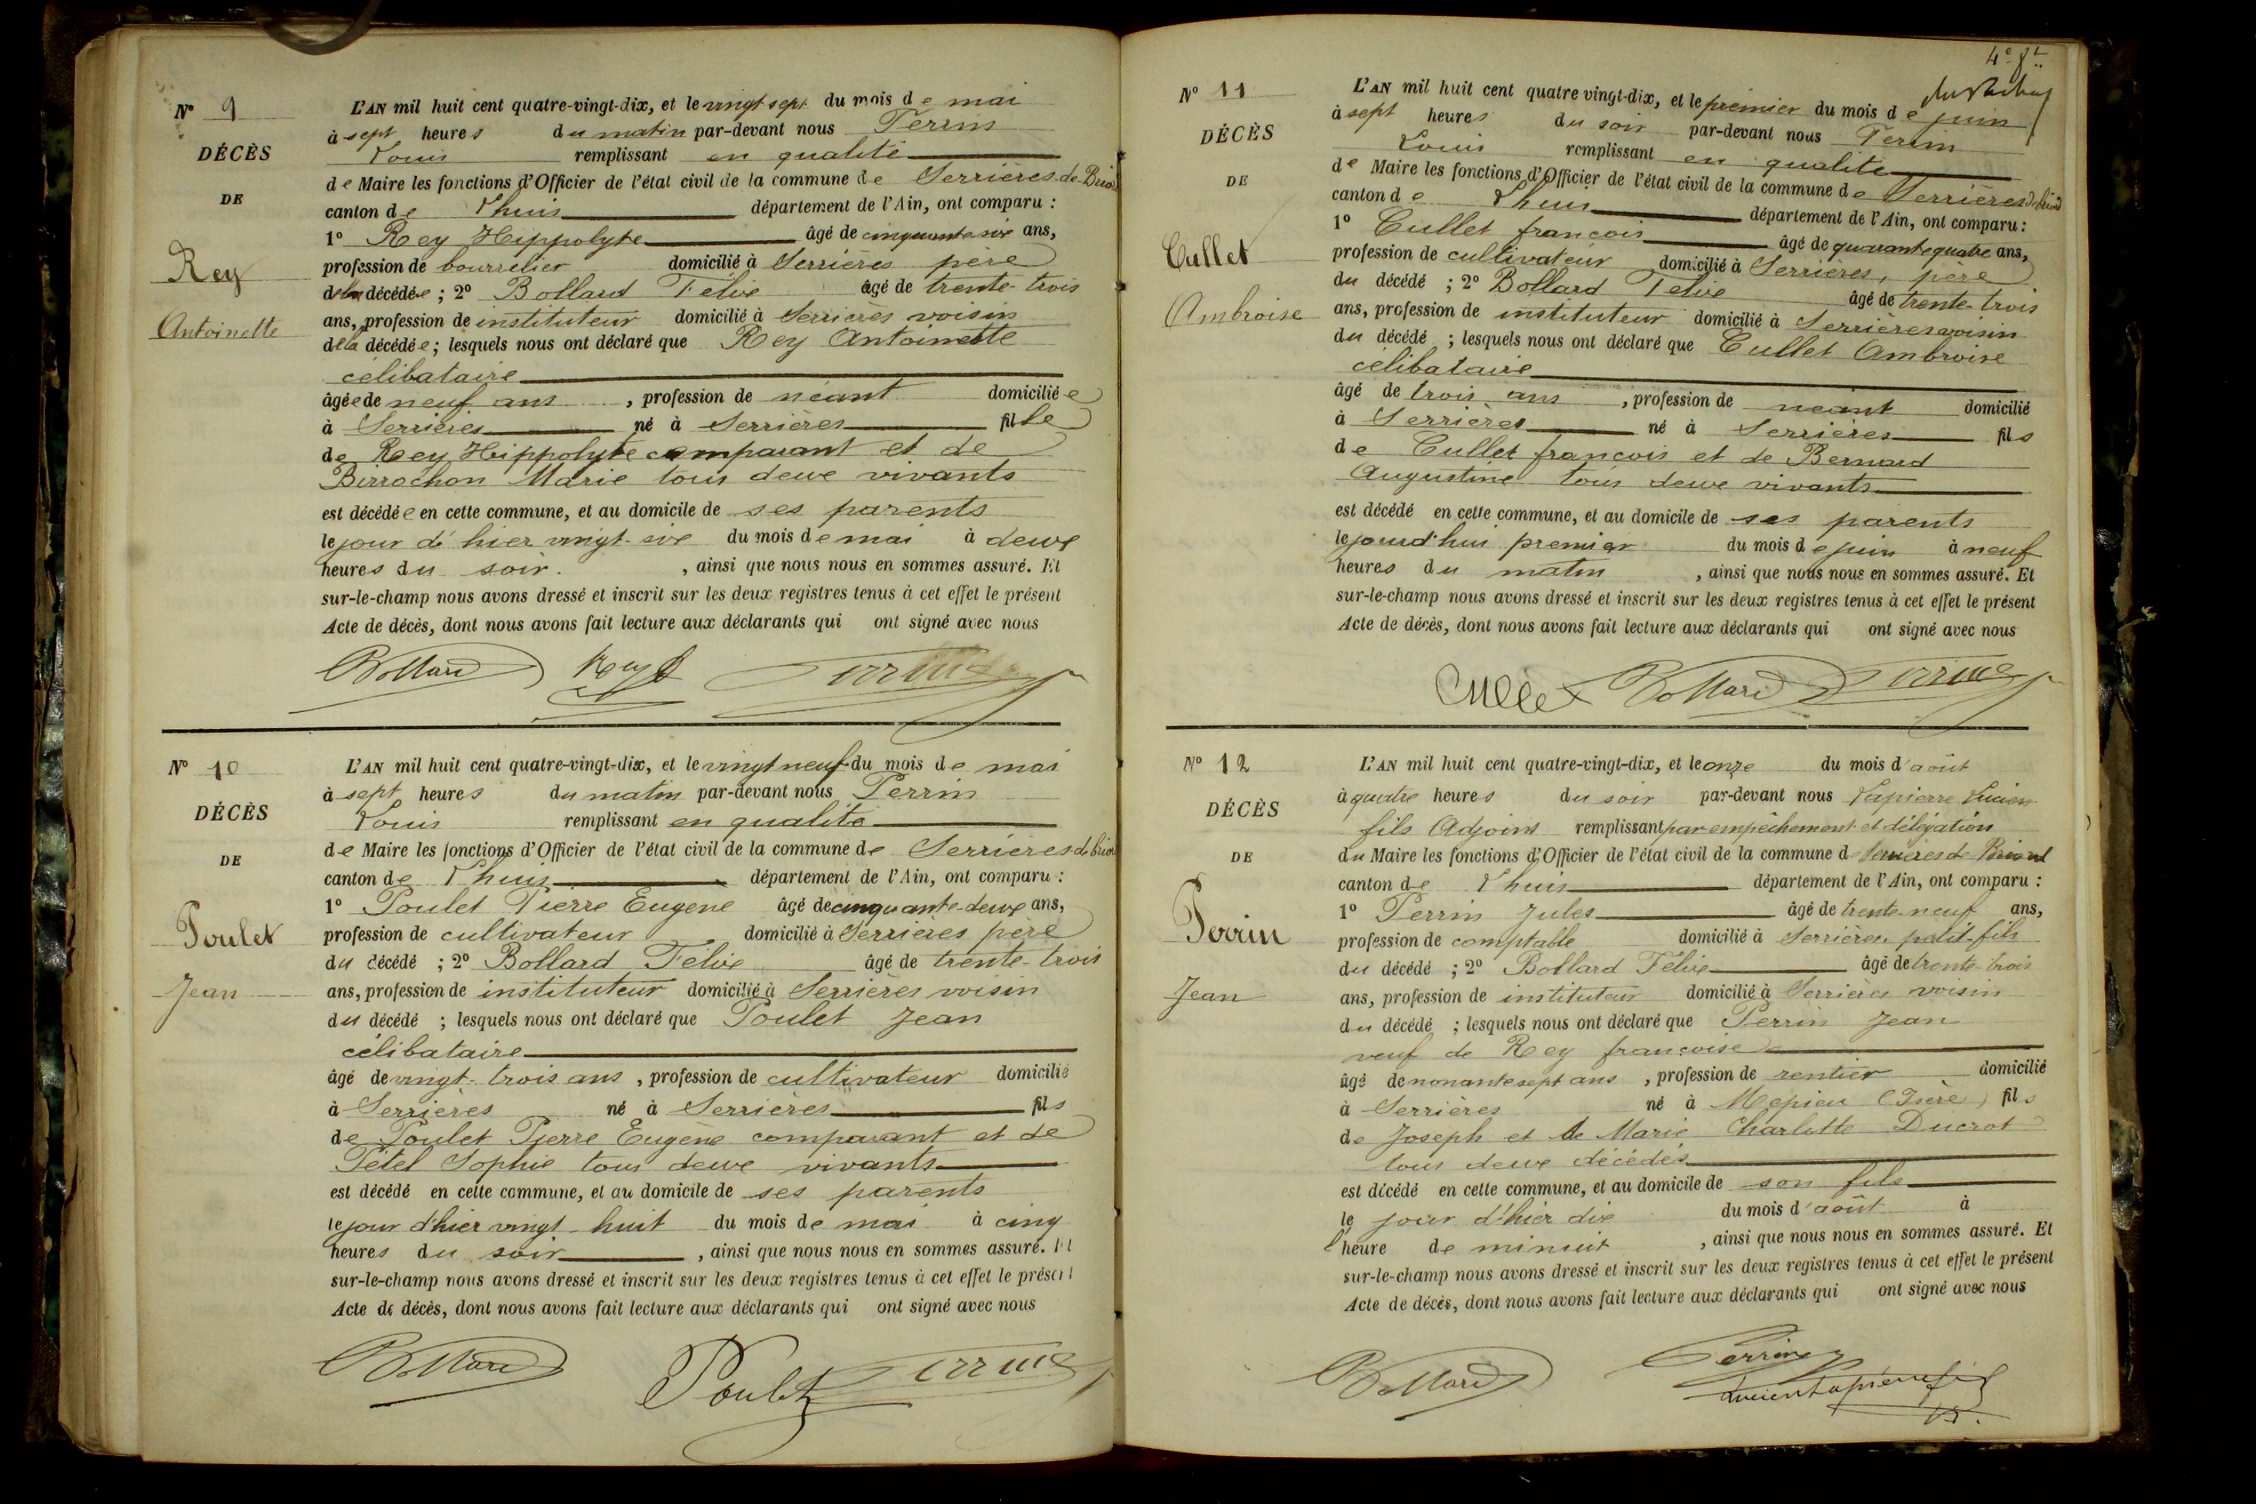 N° 9
DÉCÈS
DE
Rey
Antoinette
L'AN mil huit cent quatre-vingt-dix, et le vingt sept du mois de mai
à sept heures du matin par-devant nous Perrin
Louis remplissant en qualité
de Maire les fonctions d'Officier de l'état civil de la commune de Serrières-de-Brior
canton de Lhuis département de l'Ain, ont comparu :
1° Rey Hippolyte âgé de cinquante six ans,
profession de bourrelier domicilié à Serrières père
de la décédée ; 2° Bollard Félix âgé de trente-trois
ans, profession de instituteur domicilié à Serrières voisin
de la décédée ; lesquels nous ont déclaré que Rey Antoinette
célibataire
âgée de neuf ans , profession de néant domiciliée
à Serrières né à Serrières fille
de Rey Hippolyte comparant et de
Birrochon Marie tous deux vivants
est décédée en cette commune, et au domicile de ses parents
le jour d'hier vingt-six du mois de mai à deux
heures du soir. , ainsi que nous nous en sommes assuré. Et
sur-le-champ nous avons dressé et inscrit sur les deux registres tenus à cet effet le présent
Acte de décès, dont nous avons fait lecture aux déclarants qui ont signé avec nous
Bollard Rey Perrin
N° 10
DÉCÈS
DE
Poulet
Jean
L'AN mil huit cent quatre-vingt-dix, et le vingt neuf du mois de mai
à sept heures du matin par-devant nous Perrin
Louis remplissant en qualité
de Maire les fonctions d'Officier de l'état civil de la commune de Serrières de briord
canton de Lhuis département de l'Ain, ont comparu :
1° Poulet Pierre Eugène âgé de cinquante-deux ans,
profession de cultivateur domicilié à Serrières père
du décédé ; 2° Bollard Félix âgé de trente-trois
ans, profession de instituteur domicilié à Serrières voisin
du décédé ; lesquels nous ont déclaré que Poulet Jean
célibataire
âgé de vingt-trois ans , profession de cultivateur domicilié
à Serrières né à Serrières fils
de Poulet Pierre Eugène comparant et de
Pétel Sophie tous deux vivants
est décédé en cette commune, et au domicile de ses parents
le jour d'hier vingt-huit du mois de mai à cinq
heures du soir , ainsi que nous nous en sommes assuré. Et
sur-le-champ nous avons dressé et inscrit sur les deux registres tenus à cet effet le présent
Acte de décès, dont nous avons fait lecture aux déclarants qui ont signé avec nous
Bollard Poulet Perrin
4e ft
N° 11
DÉCÈS
DE
Cullet
Ambroise
L'AN mil huit cent quatre vingt-dix, et le premier du mois de juin
à sept heures du soir par-devant nous Perrin
Louis remplissant en qualité
de Maire les fonctions d'Officier de l'état civil de la commune de Serrières de briord
canton de Lhuis département de l'Ain, ont comparu :
1° Cullet françois âgé de quarante quatre ans,
profession de cultivateur domicilié à Serrières, père
du décédé ; 2° Bollard Félix âgé de trente-trois
ans, profession de instituteur domicilié à Serrières voisin
du décédé ; lesquels nous ont déclaré que Cullet Ambroise
célibataire
âgé de trois ans , profession de néant domicilié
à Serrières né à Serrières fils
de Cullet françois et de Bernard
Augustine tous deux vivants
est décédé en cette commune, et au domicile de ses parents
le jourd'hui premier du mois de juin à neuf
heures du matin , ainsi que nous nous en sommes assuré. Et
sur-le-champ nous avons dressé et inscrit sur les deux registres tenus à cet effet le présent
Acte de décès, dont nous avons fait lecture aux déclarants qui ont signé avec nous
Cullet Bollard Perrin
N° 12
DÉCÈS
DE
Perrin
Jean
L'AN mil huit cent quatre-vingt-dix, et le onze du mois d'août
à quatre heures du soir par-devant nous Lapierre Lucien
fils Adjoint remplissant par empêchement et délégation
du Maire les fonctions d'Officier de l'état civil de la commune de Serrières de Briord
canton de Lhuis département de l'Ain, ont comparu :
1° Perrin Jules âgé de trente-neuf ans,
profession de comptable domicilié à Serrières petit-fils
du décédé ; 2° Bollard Félix âgé de trente-trois
ans, profession de instituteur domicilié à Serrières voisin
du décédé ; lesquels nous ont déclaré que Perrin Jean
veuf de Rey françoise
âgé de nonante sept ans , profession de rentier domicilié
à Serrières né à Mepieu (Isère) fils
de Joseph et de Marie Charlotte Ducrot
tous deux décédés
est décédé en cette commune, et au domicile de son fils
le jour d'hier dix du mois d'août à
l'heure de minuit , ainsi que nous nous en sommes assuré. Et
sur-le-champ nous avons dressé et inscrit sur les deux registres tenus à cet effet le présent
Acte de décès, dont nous avons fait lecture aux déclarants qui ont signé avec nous
Bollard Perrin
Lucien Lapierre fils